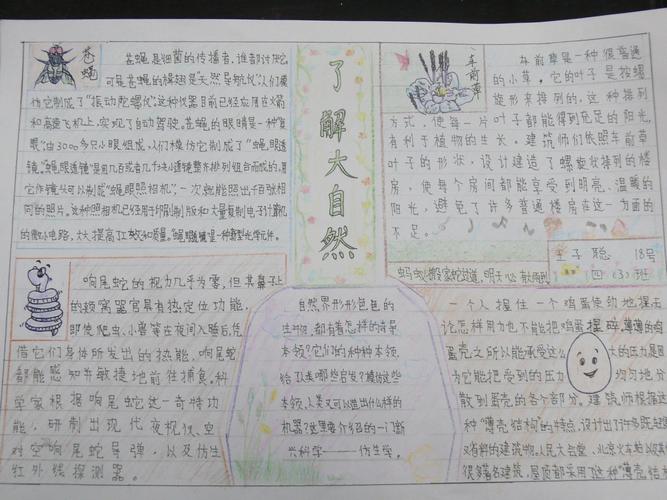 苍蝇
苍蝇是细菌的传播者,谁都讨厌它
可是苍蝇的楫翅是"天然导航仪"人们模
仿它制成了"振动陀螺仪"这种仪器目前已经应用在火箭
和高速飞机上,实现了自动驾驶。苍蝇的眼睛是一种"复
眼"由3000多只小眼组成,人们模仿它制成了"蝇眼透
镜。"蝇眼透镜"是用几百或者几千块小透镜整齐排列组合而成的,用
它作镜头可以制成"蝇眼照相机",一次就能照出千百张相
同的照片。这种照相机已经用于印刷制版和大量复制电子计算机
的微小电路,大大提高了工效和质量。"蝇眼透镜"是一种新型光学元件。
响尾蛇的视力几乎为零,但其鼻子上
的颊窝器官具有热定位功能,
即使爬虫、小兽等在夜间入睡后,凭
借它们身体所发出的热能,响尾蛇
都能感知并敏捷地前往捕食。科
学家根据响尾蛇这一奇特功
能,研制出现代夜视仪、空
对空响尾蛇导弹,以及仿生
红外线探测器。
了解大自然
自然界形形色色的
生物,都有着怎样的奇异
本领?它们的种种本领,
给了人类哪些启发?模仿这些
本领,人类又可以造出什么样的
机器?这里要介绍的一门新
兴科学——仿生学。
车前草
车前草是一种很普通
的小草,它的叶子是按螺
旋形来排列的,这种排列
方式,使每一片叶子都能得到充足的阳光,
有利于植物的生长。建筑师们依照车前草
叶子的形状,设计建造了螺旋状排列的楼
房,使每个房间都能享受到明亮、温暖的
阳光,避免了许多普通楼房在这一方面的
不足。
王子聪 18号
四(3)班
蚂蚁搬家蛇过道,明天必有大雨到
一个人握住一个鸡蛋使劲地捏,无
论怎样用力也不能把鸡蛋捏碎,薄薄的鸡
蛋壳之所以能承受这么大的压力是因
为它能把受到的压力均匀地分
散到蛋壳的各个部分。建筑师根据这
种"薄壳结构"的特点,设计出了许多既轻便
又省料的建筑物。人民大会堂、北京火车站以及其他
很多著名建筑,屋顶都采用了这种"薄壳"结构